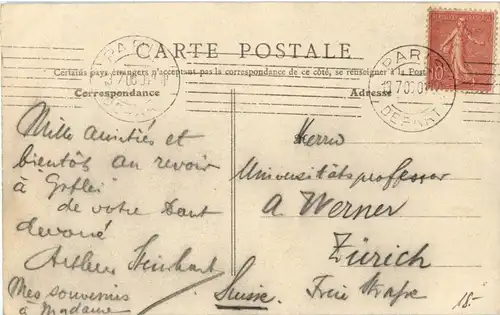 CARTE POSTALE
Certains pays étrangers n'acceptent pas la correspondance de ce côté, se renseigner à la Poste
Correspondance
Adresse
PARIS
DEPART
PARIS
DEPART
10
Mille amitiés et
bientôt au revoir
à
de votre tout
devoué
Arthur
Mes souvenirs
à Madame
Herrn
Universitätsprofessor
A Werner
Zürich
Suisse. Freie Strasse
18.-